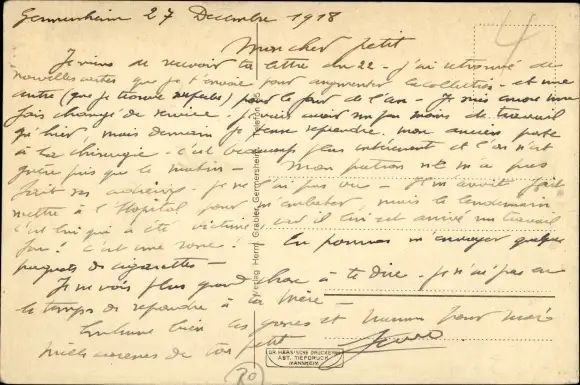 Germersheim 27 Decembre 1918
Mon cher petit
Je viens de recevoir ta lettre du 22 - j'ai retrouvé de
nouvelles cartes que je t'envoie pour augmenter la collection - et une
autre (que je trouve ) pour le jour de l'an - Je suis encore une
fois changé de service. j'avais avoir un peu moins de travail
qu'hier, mais demain je pense reprendre mon ancien poste
à la chirurgie - c'est beaucoup plus intéressant et l'on n'est
guère pris que le matin - Mon patron m'a pas
fait ses adieux - je ne l'ai pas vu - Il m'avait fait
mettre à l'Hopital pour mais le lendemain
c'est lui qui a été victime car il lui est arrivé un travail
fou! c'est une rosse! Tu pourras m'envoyer quelques
paquets de cigarettes -
Je ne vois plus grand chose à te dire - je n'ai pas eu
le temps de repondre à ta mère -
bien les gosses et Maman pour moi
mille caresses de ton petit
Verlag Herm. Grabler, Germersheim, Telefon
DR. HAAS'SCHE DRUCKEREI
ABT. TIEFDRUCK
MANNHEIM
4
20